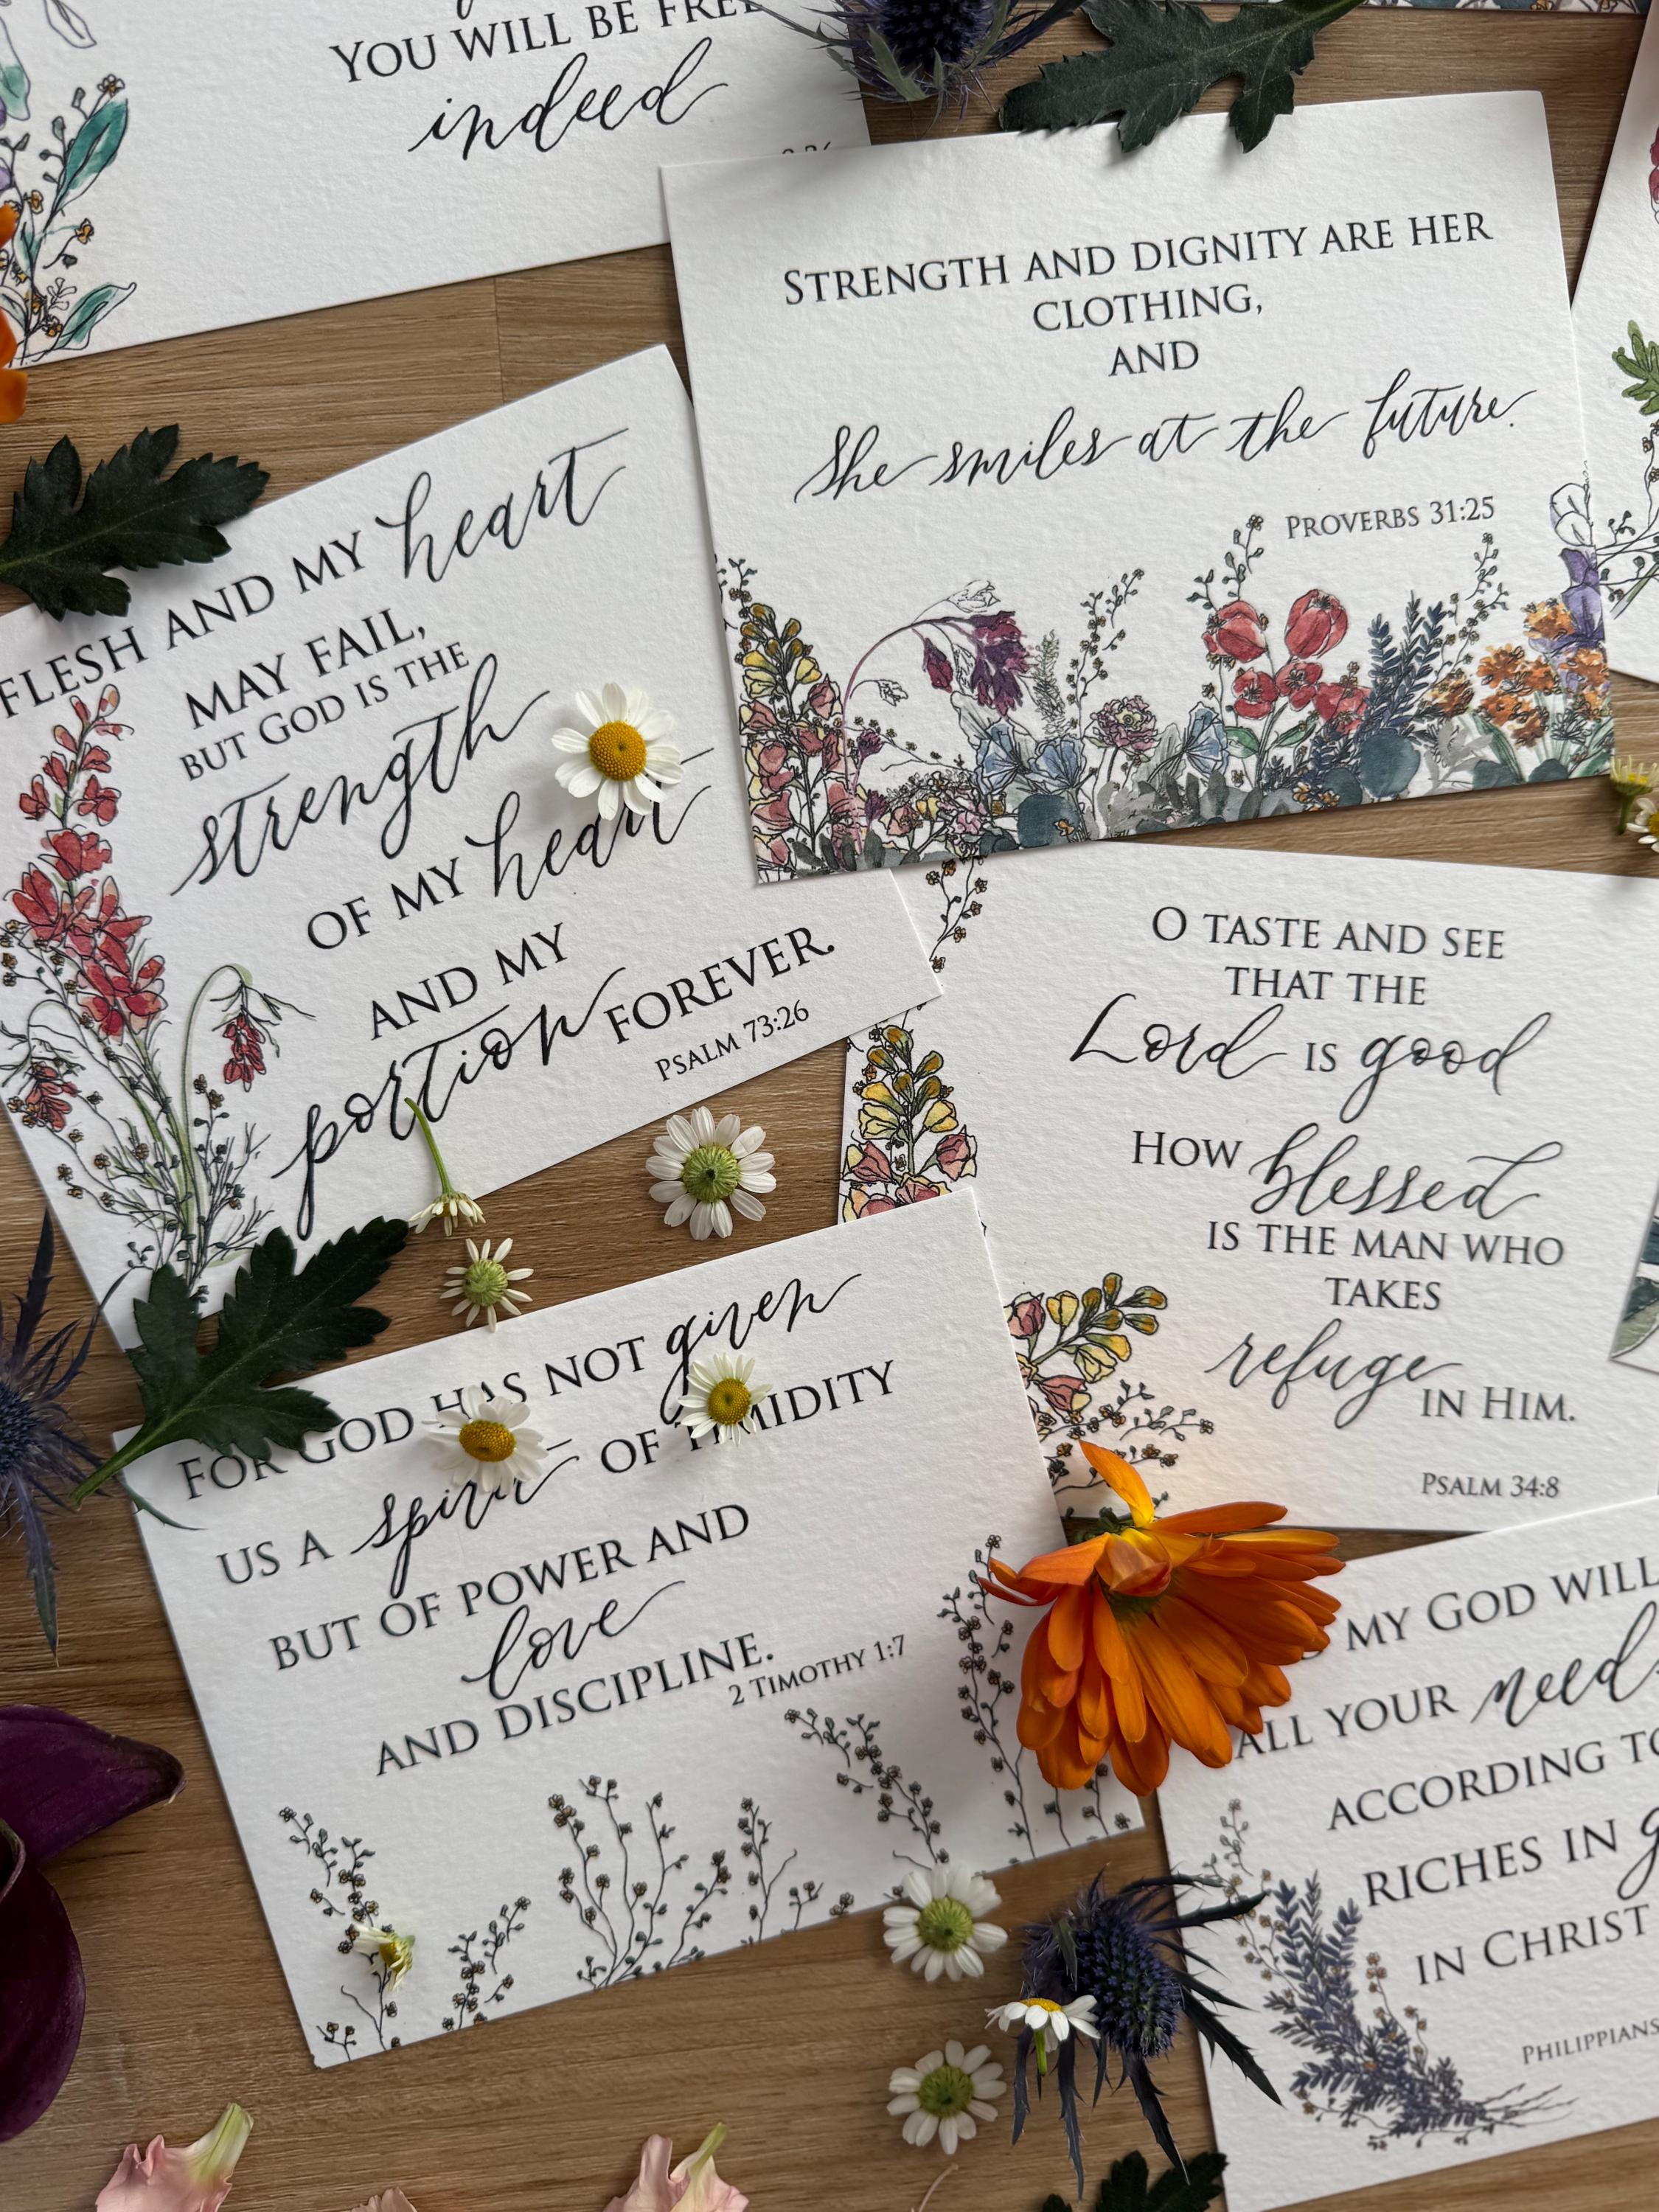 YOU WILL BE FREE
indeed
STRENGTH AND DIGNITY ARE HER
CLOTHING,
AND
She smiles at the future.
PROVERBS 31:25
FLESH AND MY heart
MAY FAIL,
BUT GOD IS THE
strength
OF MY heart
AND MY
portion FOREVER.
PSALM 73:26
O TASTE AND SEE
THAT THE
Lord IS good
HOW blessed
IS THE MAN WHO
TAKES
refuge IN HIM.
PSALM 34:8
FOR GOD HAS NOT given
US A spirit OF TIMIDITY
BUT OF POWER AND
love
AND DISCIPLINE.
2 TIMOTHY 1:7
MY GOD WILL
ALL YOUR needs
ACCORDING TO
RICHES IN
IN CHRIST
PHILIPPIANS